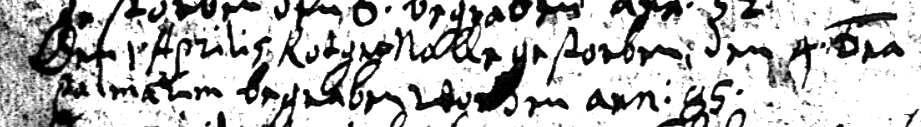 gestorben den 8. begraben ann. 52.
Den 1. Aprilis Rotger Nolle gestorben, den 4. Dca
palmarum begraben worden ann: 85.